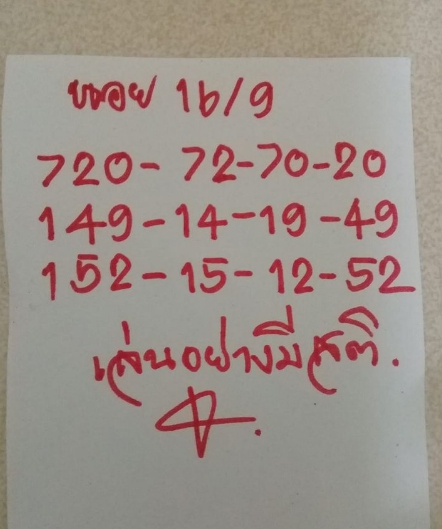 หวย 16/9
720- 72-70-20
149-14-19-49
152-15-12-52
เล่นอย่างมีสติ.